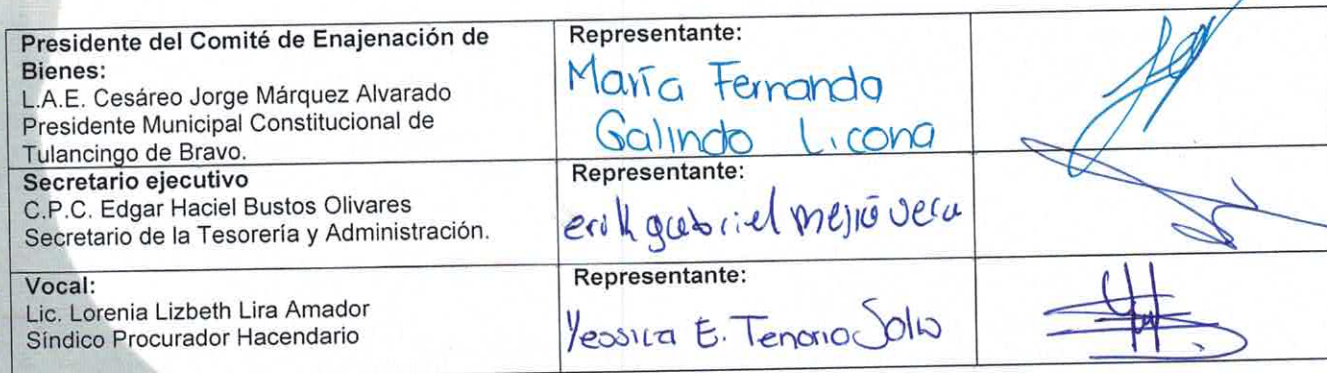 Presidente del Comité de Enajenación de
Bienes:
L.A.E. Cesáreo Jorge Márquez Alvarado
Presidente Municipal Constitucional de
Tulancingo de Bravo.
Representante:
María Fernanda
Galindo Licona
Secretario ejecutivo
C.P.C. Edgar Haciel Bustos Olivares
Secretario de la Tesorería y Administración.
Representante:
erik gabriel mejia vera
Vocal:
Lic. Lorenia Lizbeth Lira Amador
Síndico Procurador Hacendario
Representante:
Yessica E. Tenorio